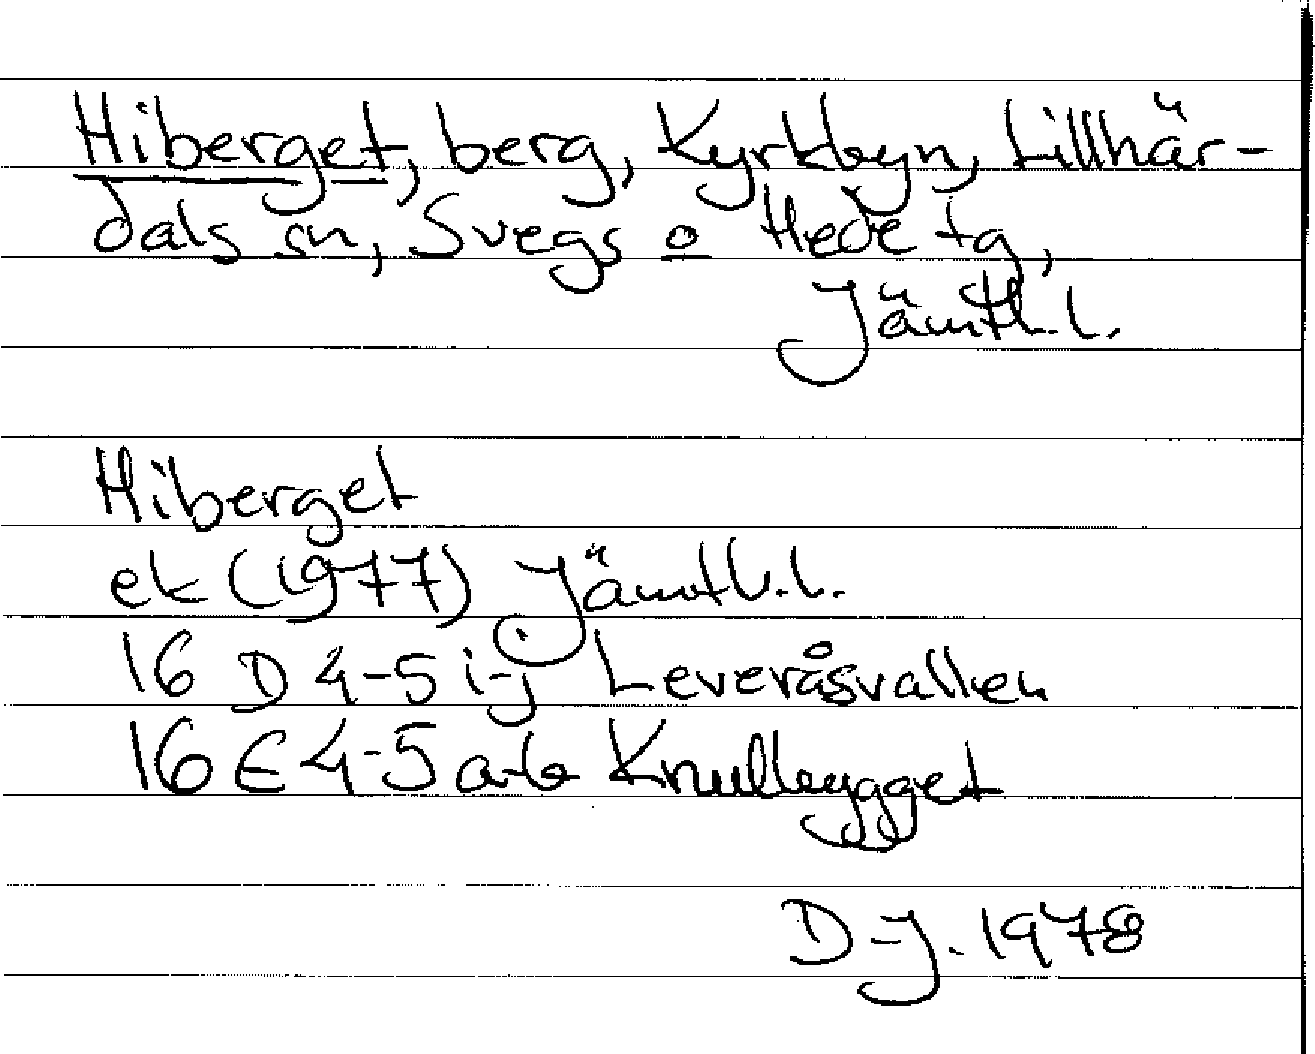 Hiberget, berg, Kyrkbyn, Lillhär-
dals sn, Svegs o Hede tg,
Jämtl. l.
Hiberget
ek (1977) Jämtl. l.
16 D 4-5 i-j Leveråsvallen
16 E 4-5 a-b Knullbygget
D-J. 1978